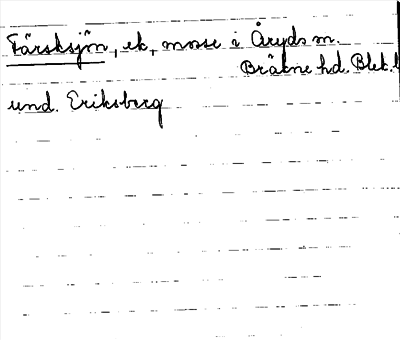 Färsksjön, ek, mosse i Åryds m.
Bräkne hd. Blek. l
und. Eriksberg